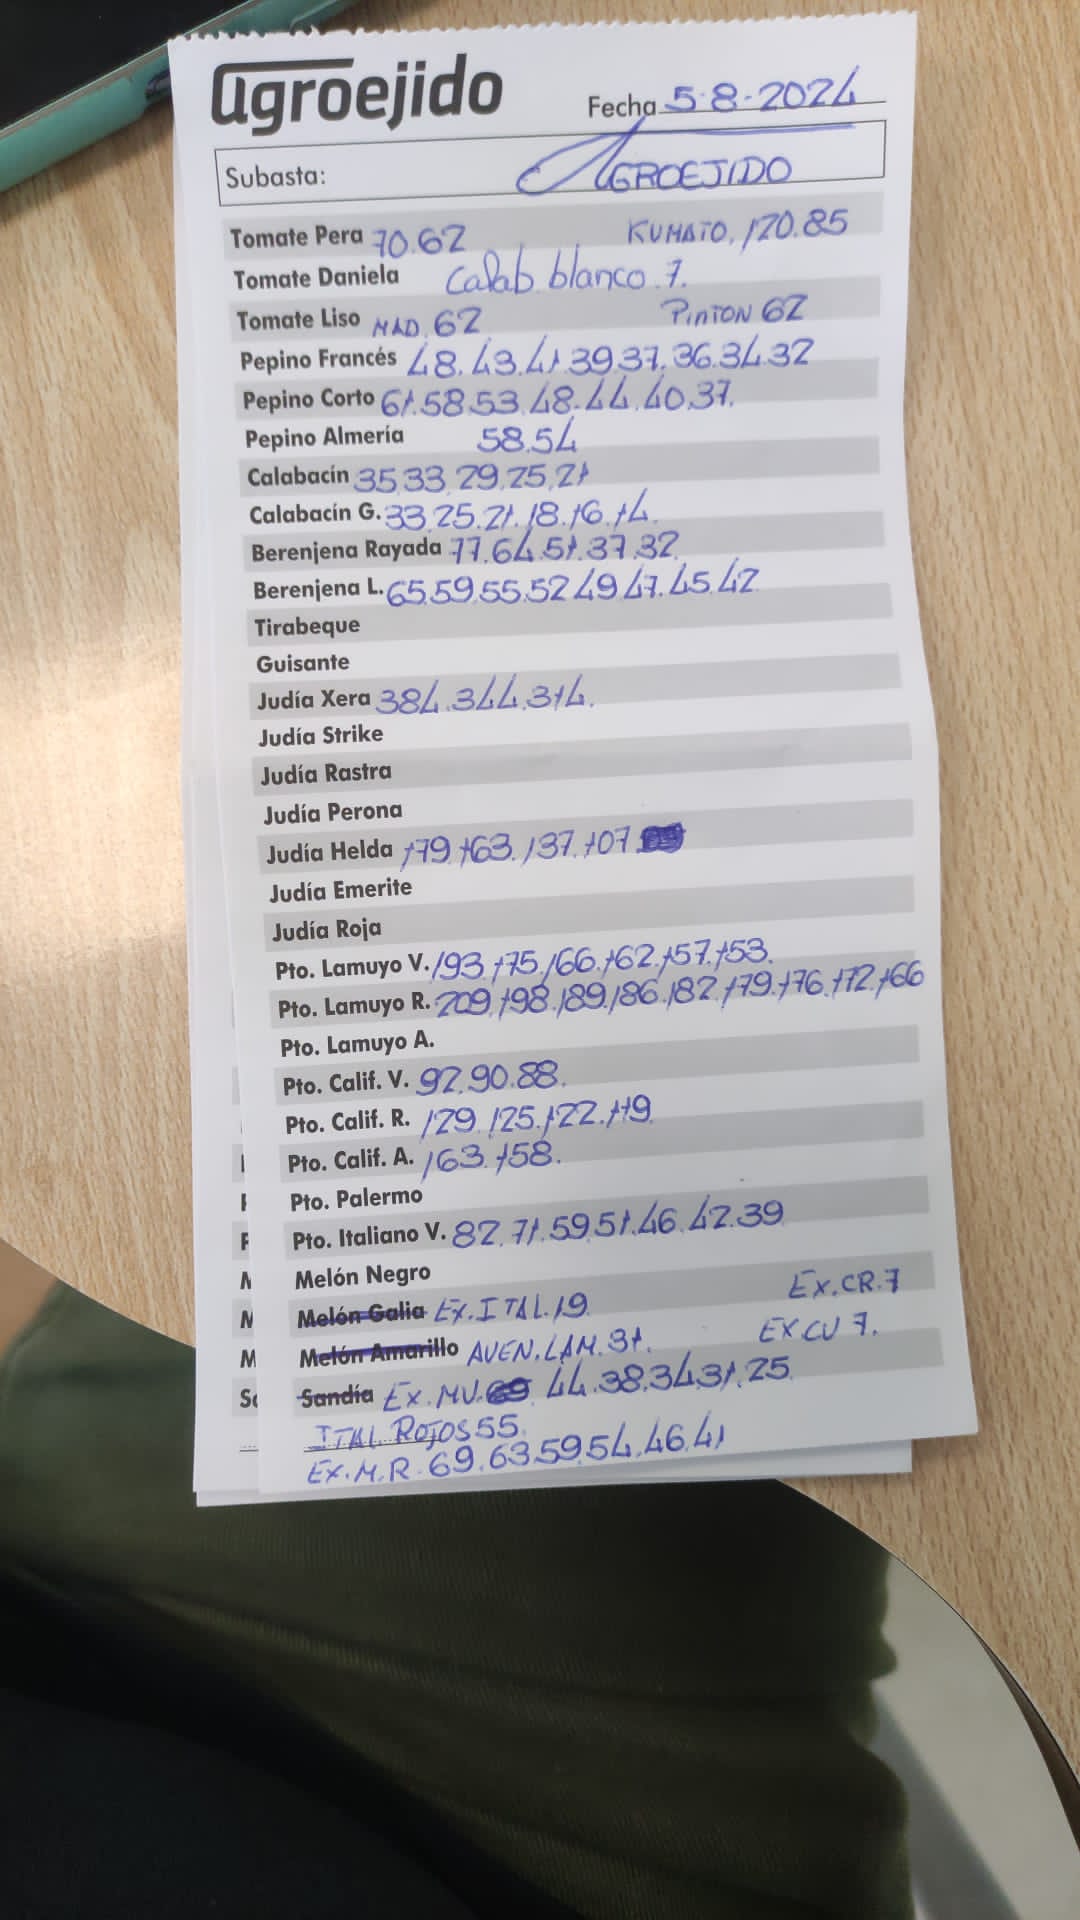 agroejido
Fecha 5-8-2024
Subasta: AGROEJIDO
Tomate Pera 70.62 KUMATO. 120.85
Tomate Daniela Calab blanco 7.
Tomate Liso MAD. 62 PINTON 62
Pepino Francés 48.43.41.39.37.36.34.32
Pepino Corto 61.58.53.48.44.40.37.
Pepino Almería 58.54
Calabacín 35.33.29.25.21
Calabacín G. 33.25.21.18.16.14.
Berenjena Rayada 77.64.51.37.32.
Berenjena L. 65.59.55.52.49.47.45.42
Tirabeque
Guisante
Judía Xera 384.344.314.
Judía Strike
Judía Rastra
Judía Perona
Judía Helda 179.163.137.107
Judía Emerite
Judía Roja
Pto. Lamuyo V. 193.175.166.162.157.153.
Pto. Lamuyo R. 209.198.189.186.182.179.176.172.166
Pto. Lamuyo A.
Pto. Calif. V. 92.90.88.
Pto. Calif. R. 129.125.122.119
Pto. Calif. A. 163.158.
Pto. Palermo
Pto. Italiano V. 82.71.59.51.46.42.39
Melón Negro
Melón Galia EX.ITAL.19. EX.CR.7
Melón Amarillo AVEN.LAM.31. EX CU 7.
Sandía EX.MV. 44.38.34.31.25
ITAL ROJOS 55.
EX.M.R. 69.63.59.54.46.41